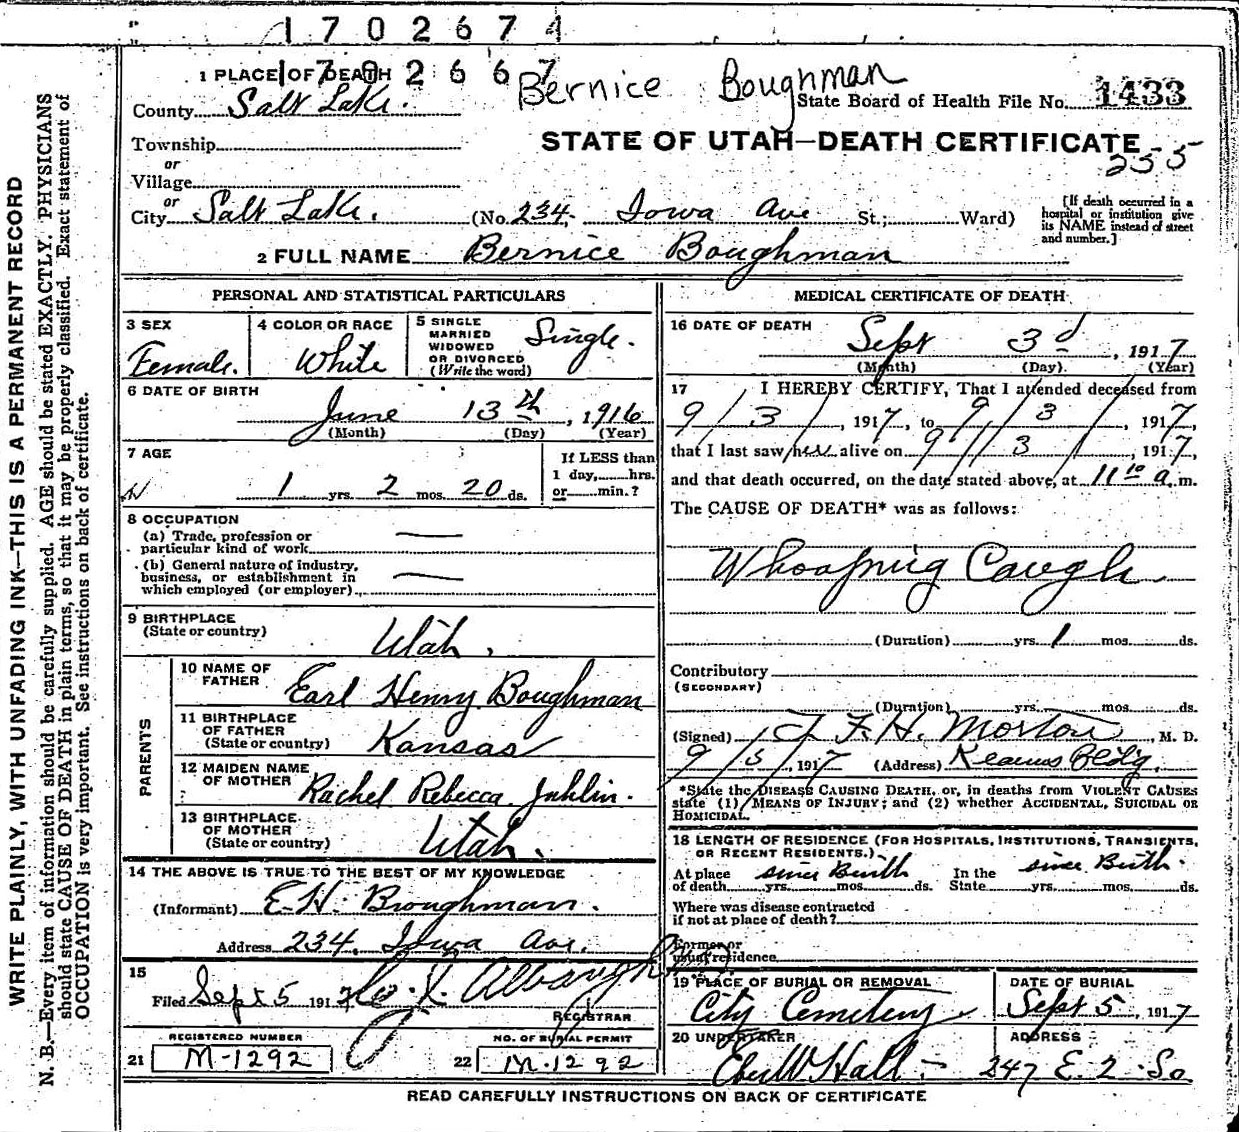 1702674
1702667
1 PLACE OF DEATH
Bernice Boughman
County Salt Lake.
State Board of Health File No. 1433
Township
STATE OF UTAH—DEATH CERTIFICATE
235
or
Village
or
City Salt Lake. (No. 234, Iowa Ave St.; Ward)
[If death occurred in a hospital or institution give its NAME instead of street and number.]
2 FULL NAME Bernice Boughman
PERSONAL AND STATISTICAL PARTICULARS
3 SEX
Female.
4 COLOR OR RACE
White
5 SINGLE
MARRIED
WIDOWED
OR DIVORCED
(Write the word)
Single.
6 DATE OF BIRTH
June 13th, 1916
(Month) (Day) (Year)
7 AGE
1 yrs. 2 mos. 20 ds.
If LESS than
1 day, hrs.
or min.?
8 OCCUPATION
(a) Trade, profession or
particular kind of work
(b) General nature of industry,
business, or establishment in
which employed (or employer)
9 BIRTHPLACE
(State or country)
Utah.
PARENTS
10 NAME OF
FATHER
Earl Henry Boughman
11 BIRTHPLACE
OF FATHER
(State or country)
Kansas
12 MAIDEN NAME
OF MOTHER
Rachel Rebecca
13 BIRTHPLACE
OF MOTHER
(State or country)
Utah.
14 THE ABOVE IS TRUE TO THE BEST OF MY KNOWLEDGE
(Informant) E.H. Broughman.
Address 234. Iowa Ave.
15
Filed Sept 5 1917
REGISTRAR
REGISTERED NUMBER
21 M-1292
NO. OF BURIAL PERMIT
22 M.1292
MEDICAL CERTIFICATE OF DEATH
16 DATE OF DEATH
Sept 3d, 1917
(Month) (Day) (Year)
17 I HEREBY CERTIFY, That I attended deceased from
9/3/, 1917, to 9/3/, 1917,
that I last saw her alive on 9/3/, 1917,
and that death occurred, on the date stated above, at 11 10 a m.
The CAUSE OF DEATH* was as follows:
Whooping Cough.
(Duration) yrs. 1 mos. ds.
Contributory
(SECONDARY)
(Duration) yrs. mos. ds.
(Signed) F. H. Morton, M. D.
9/5/, 1917 (Address) Kearns Bldg.
*State the DISEASE CAUSING DEATH, or, in deaths from VIOLENT CAUSES
state (1) MEANS OF INJURY; and (2) whether ACCIDENTAL, SUICIDAL OR
HOMICIDAL.
18 LENGTH OF RESIDENCE (FOR HOSPITALS, INSTITUTIONS, TRANSIENTS,
OR RECENT RESIDENTS.)
At place
of death yrs. mos. ds. since Birth
In the
State yrs. mos. ds. since Birth.
Where was disease contracted
if not at place of death?
Former or
usual residence
19 PLACE OF BURIAL OR REMOVAL
City Cemetery
DATE OF BURIAL
Sept 5, 1917
20 UNDERTAKER
Eber W Hall
ADDRESS
247 E. 2 So.
READ CAREFULLY INSTRUCTIONS ON BACK OF CERTIFICATE
WRITE PLAINLY, WITH UNFADING INK—THIS IS A PERMANENT RECORD
N. B.—Every item of information should be carefully supplied. AGE should be stated EXACTLY. PHYSICIANS
should state CAUSE OF DEATH in plain terms, so that it may be properly classified. Exact statement of
OCCUPATION is very important. See instructions on back of certificate.